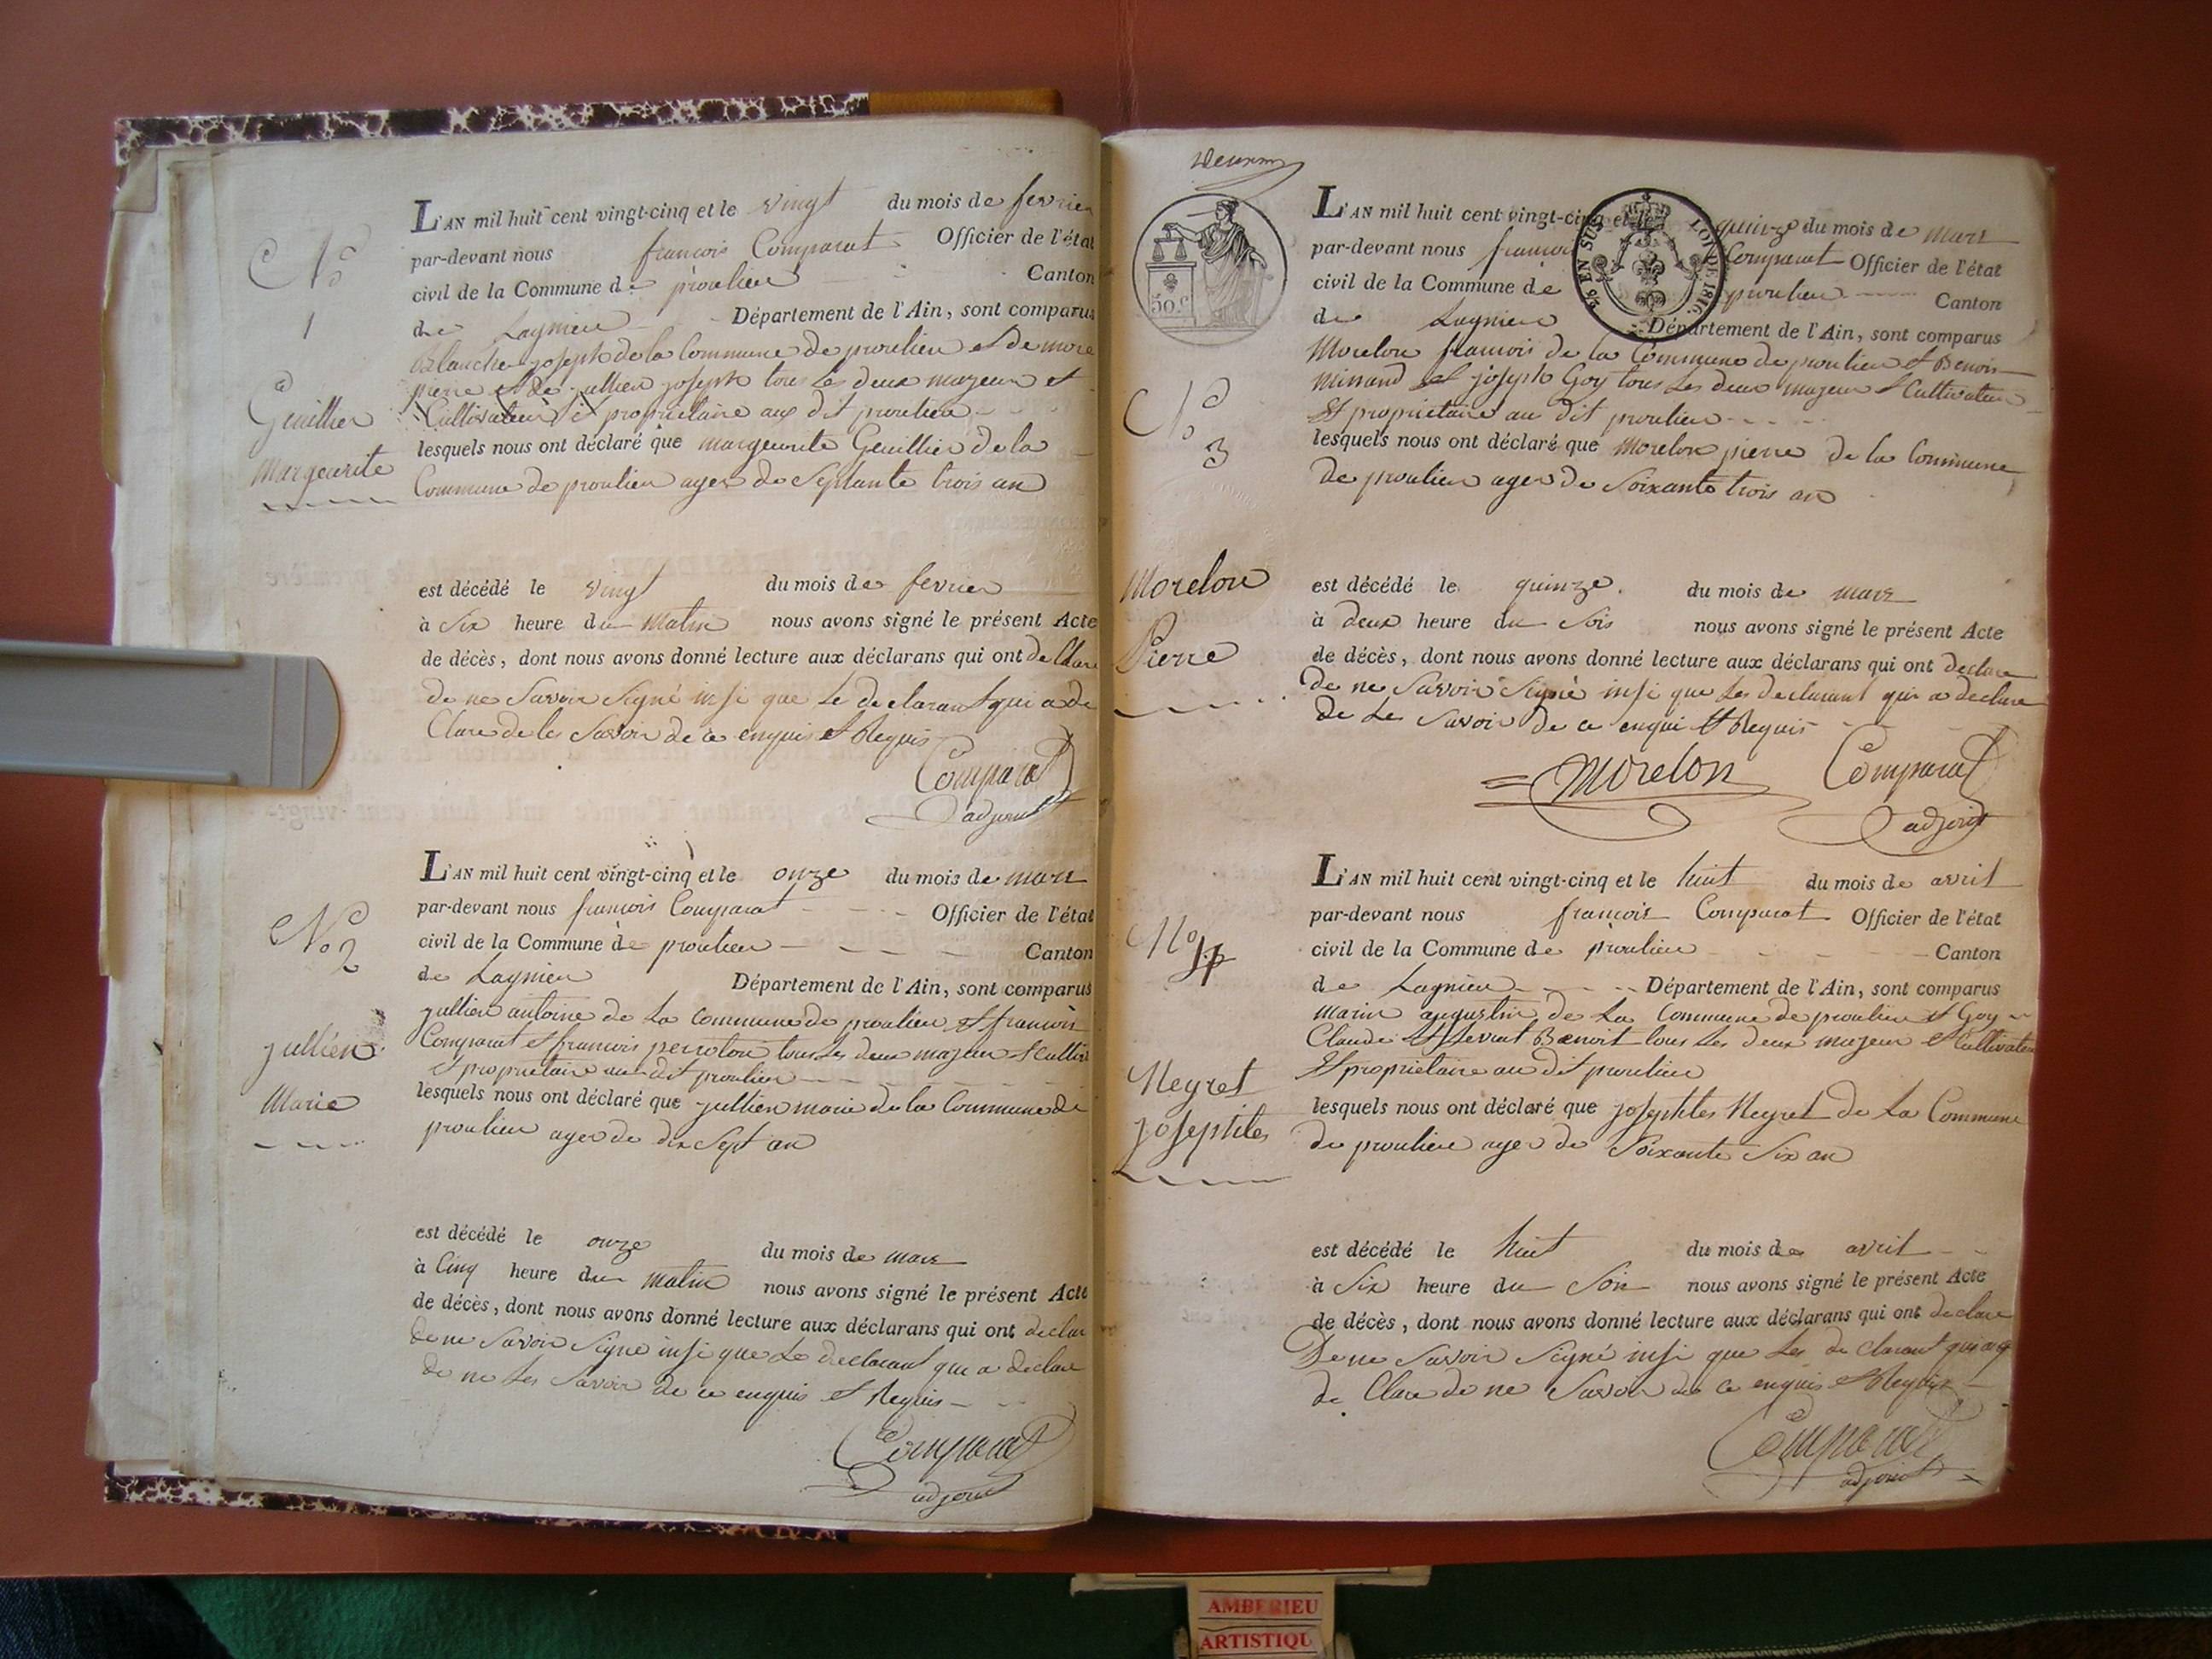 N°
1
Geuillier
Marguerite
L'AN mil huit cent vingt-cinq et le vingt du mois de fevrier
par-devant nous francois Comparat Officier de l'état
civil de la Commune de proulieu Canton
de Lagnieu Département de l'Ain, sont comparus
Blanchet joseph de la Commune de proulieu et de more
pierre et de jullien joseph tous les deux mazeur et
Cultivateur et propriétaire aux dit proulieu
lesquels nous ont déclaré que marguerite Geuillier de la
Commune de proulieu ager de Septante trois an
est décédé le vingt du mois de fevrier
à Six heure du Matin nous avons signé le présent Acte
de décès, dont nous avons donné lecture aux déclarans qui ont de Clare
de ne Savoir Signé insi que le declarant qui a de
Clare de les Savoir de ce enquis et Requis
Comparat
adjoint
N° 2
jullien
Marie
L'AN mil huit cent vingt-cinq et le onze du mois de mars
par-devant nous francois Comparat Officier de l'état
civil de la Commune de proulieu Canton
de Lagnieu Département de l'Ain, sont comparus
jullien antoine de la Commune de proulieu et francois
Comparat et francois perroton tous les deux mazeur et Cultiv
et propriétaire au dit proulieu
lesquels nous ont déclaré que jullien marie de la Commune de
proulieu ager de dix Sept an
est décédé le onze du mois de mars
à Cinq heure du matin nous avons signé le présent Acte
de décès, dont nous avons donné lecture aux déclarans qui ont declar
de ne Savoir Signé insi que le declarant qui a declare
de ne les Savoir de ce enquis et Requis
Comparat
adjoint
50 C
96 EN SUS LOI DE 1816
N°
3
Morelon
Pierre
L'AN mil huit cent vingt-cinq et le quinze du mois de mars
par-devant nous francois Comparat Officier de l'état
civil de la Commune de proulieu Canton
de Lagnieu Département de l'Ain, sont comparus
Morelon francois de la Commune de proulieu et Benoit
Minand et joseph Goy tous les deux mazeur et Cultivateur
et propriétaire au dit proulieu
lesquels nous ont déclaré que Morelon pierre de la Commune
de proulieu ager de Soixante trois an
est décédé le quinze du mois de mars
à deux heure du Soir nous avons signé le présent Acte
de décès, dont nous avons donné lecture aux déclarans qui ont declare
de ne Savoir Signé insi que les declarant qui a declare
de Le Savoir de ce enqui et Requis
Morelon Comparat
adjoint
N° 4
Neyret
josephtes
L'AN mil huit cent vingt-cinq et le huit du mois de avril
par-devant nous francois Comparat Officier de l'état
civil de la Commune de proulieu Canton
de Lagnieu Département de l'Ain, sont comparus
Marin augustin de la Commune de proulieu et Goy
Claude et Benoit tous les deux mazeur et Cultivateur
et propriétaire au dit proulieu
lesquels nous ont déclaré que josephtes Neyret de la Commune
de proulieu ager de Soixante Six an
est décédé le huit du mois de avril
à Six heure du Soir nous avons signé le présent Acte
de décès, dont nous avons donné lecture aux déclarans qui ont declare
De ne Savoir Signé insi que les de clarant qui a
de Clare de ne Savoir de ce enquis et Requis
Comparat
adjoint
AMBERIEU
ARTISTIQU